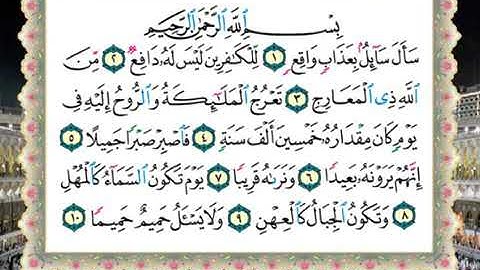 بِسْمِ ٱللَّهِ ٱلرَّحْمَٰنِ ٱلرَّحِيمِ
سَأَلَ سَآئِلٌۢ بِعَذَابٍ وَاقِعٍ ١ لِّلْكَٰفِرِينَ لَيْسَ لَهُۥ دَافِعٌ ٢ مِّنَ
ٱللَّهِ ذِى ٱلْمَعَارِجِ ٣ تَعْرُجُ ٱلْمَلَٰٓئِكَةُ وَٱلرُّوحُ إِلَيْهِ فِى
يَوْمٍ كَانَ مِقْدَارُهُۥ خَمْسِينَ أَلْفَ سَنَةٍ ٤ فَٱصْبِرْ صَبْرًا جَمِيلًا ٥
إِنَّهُمْ يَرَوْنَهُۥ بَعِيدًا ٦ وَنَرَىٰهُ قَرِيبًا ٧ يَوْمَ تَكُونُ ٱلسَّمَآءُ كَٱلْمُهْلِ
٨ وَتَكُونُ ٱلْجِبَالُ كَٱلْعِهْنِ ٩ وَلَا يَسْـَٔلُ حَمِيمٌ حَمِيمًا ١٠